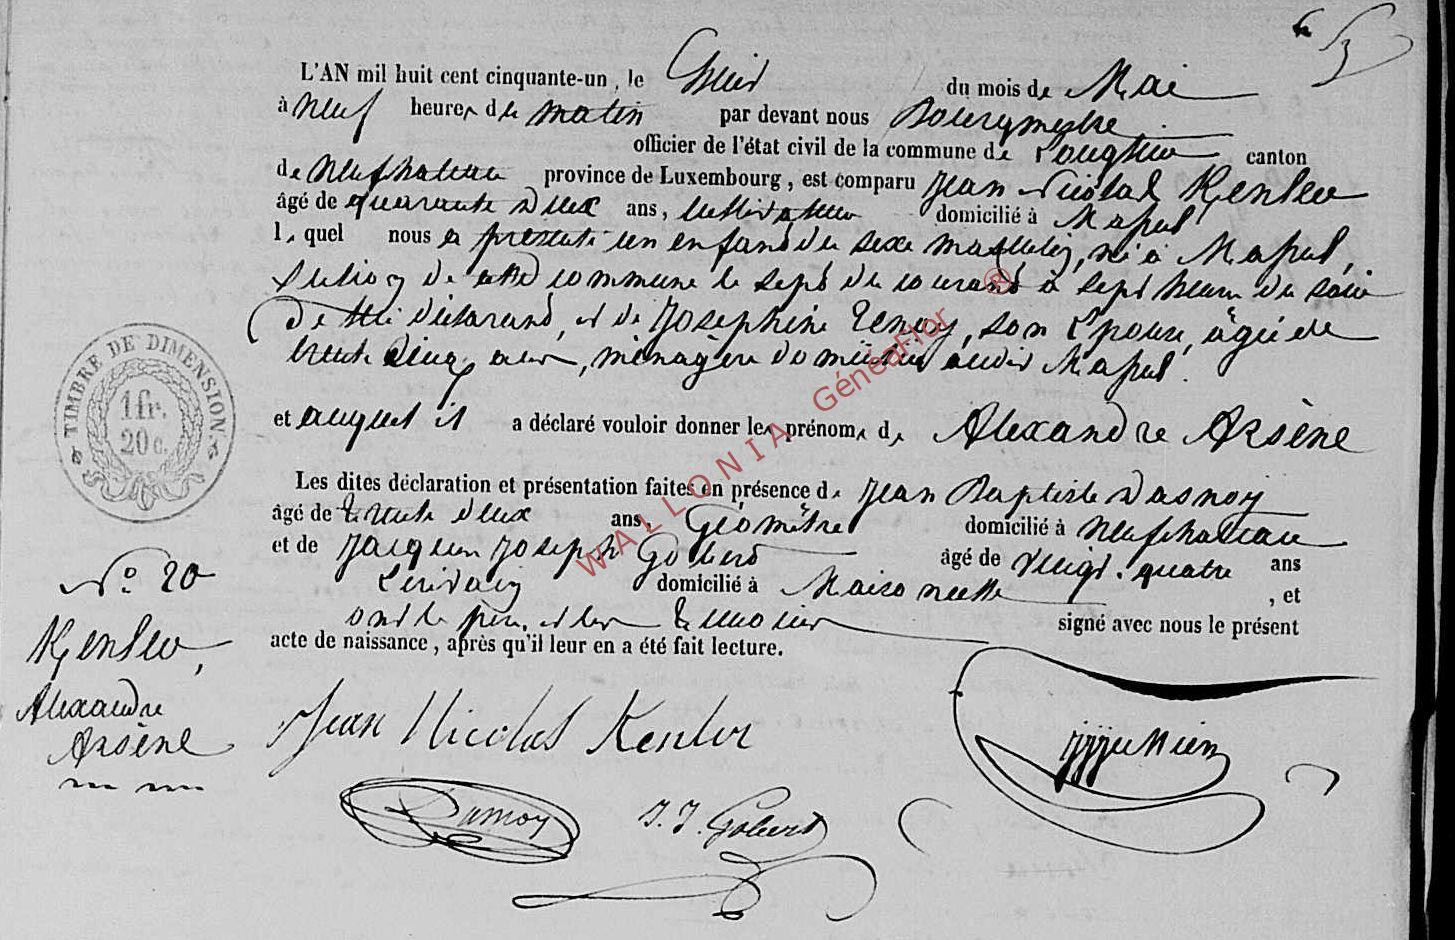 L'AN mil huit cent cinquante-un, le huit du mois de Mai
à Neuf heures de matin par devant nous Bourgmestre
officier de l'état civil de la commune de Longlier canton
de Neufchateau province de Luxembourg, est comparu Jean Nicolas Kenler
âgé de quarante deux ans, cultivateur domicilié à Massul
lequel nous a présenté un enfant du sexe masculin, né à Massul,
Section de cette commune le sept du courant à sept heures du soir
de lui déclarant, et de Josephine son Epouse, âgée de
trente cinq ans, ménagère domiciliée audit Massul.
et auquel il a déclaré vouloir donner les prénoms de Alexandre Arsène
Les dites déclaration et présentation faites en présence de Jean Baptiste Dasnoy
âgé de trente deux ans, Géomètre domicilié à Neufchateau
et de Jacques Joseph Gobert âgé de vingt-quatre ans
Ecrivain domicilié à , et
ont le père, et les témoins signé avec nous le présent
acte de naissance, après qu'il leur en a été fait lecture.
TIMBRE DE DIMENSION
1 fr.
20 c.
No. 20
Kenler,
Alexandre
Arsène
Jean Nicolas Kenler
Dasnoy
J. J. Gobert
WALLONIA GénéaFlor ®